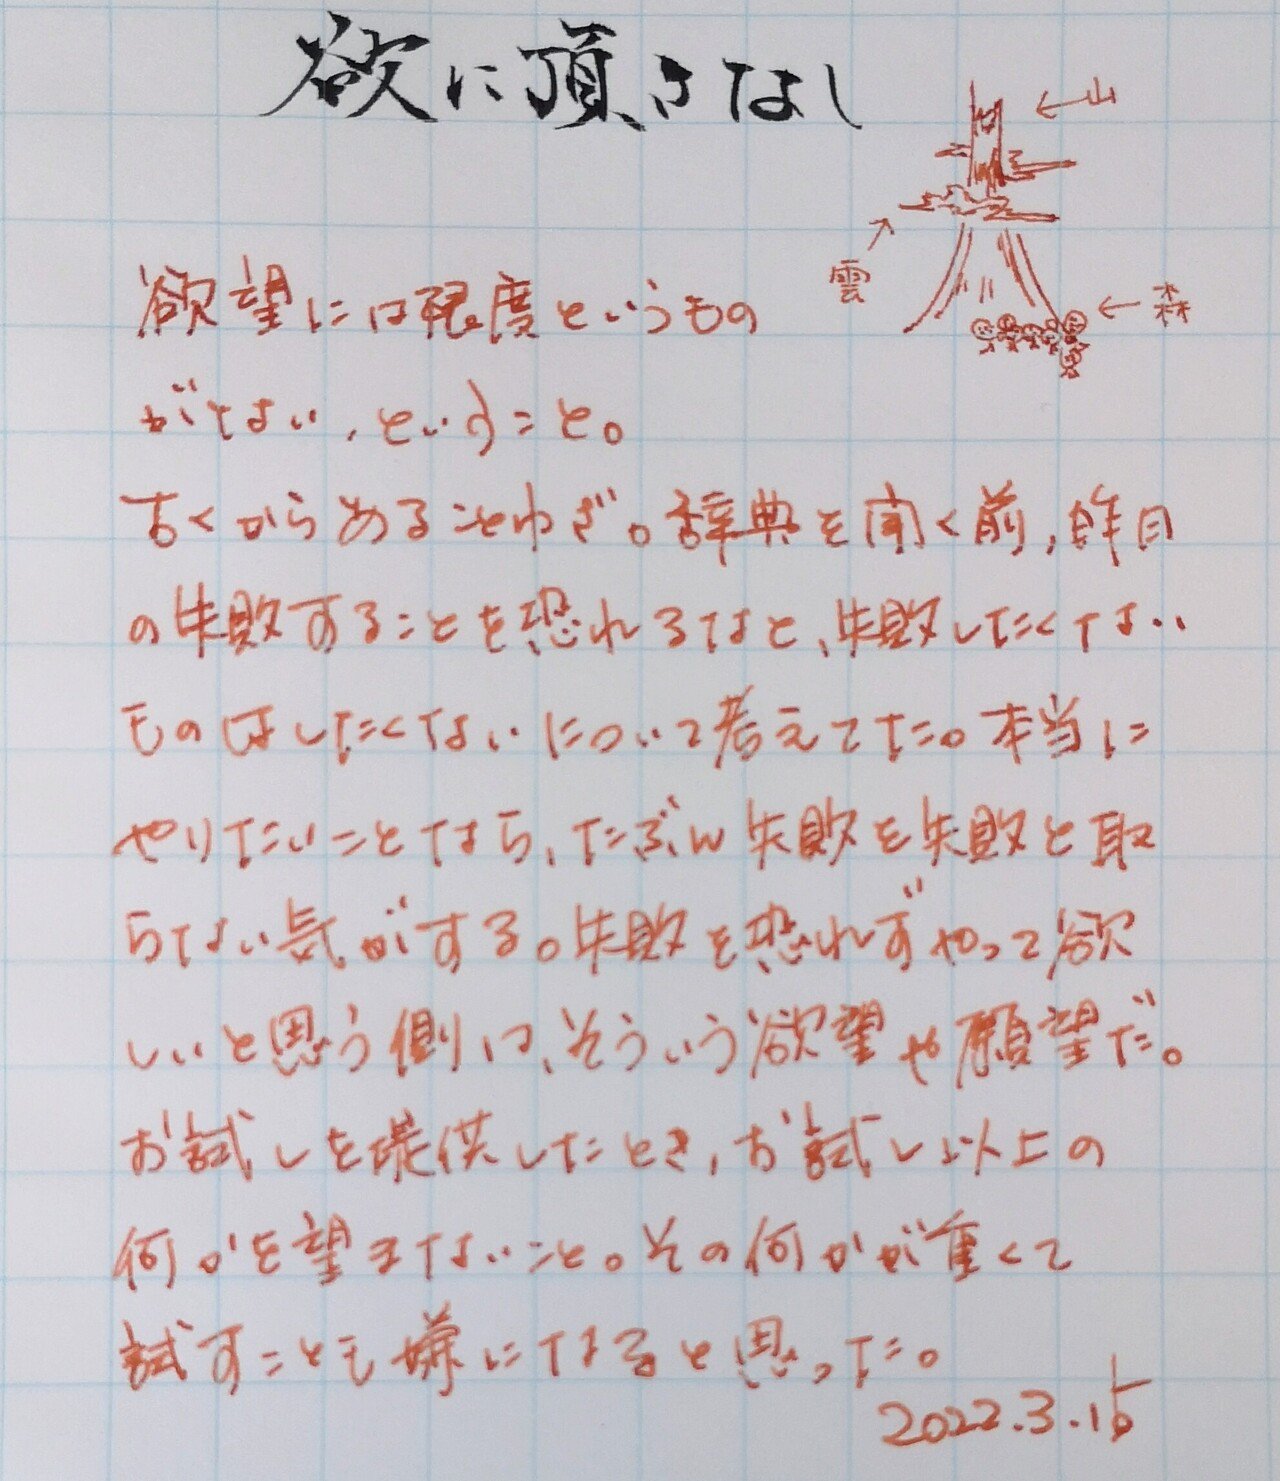 欲に頂きなし
←山
雲
←森
欲望には限度というもの
がない、ということ。
古くからあることわざ。辞典を開く前、昨日
の失敗することを恐れるなと、失敗したくない
ものはしたくないについて考えてた。本当に
やりたいことなら、たぶん失敗を失敗と取
らない気がする。失敗を恐れずやって欲
しいと思う側は、そういう欲望や願望だ。
お試しを提供したとき、お試し以上の
何かを望まないこと。その何かが重くて
試すことも嫌になると思った。
2022.3.15